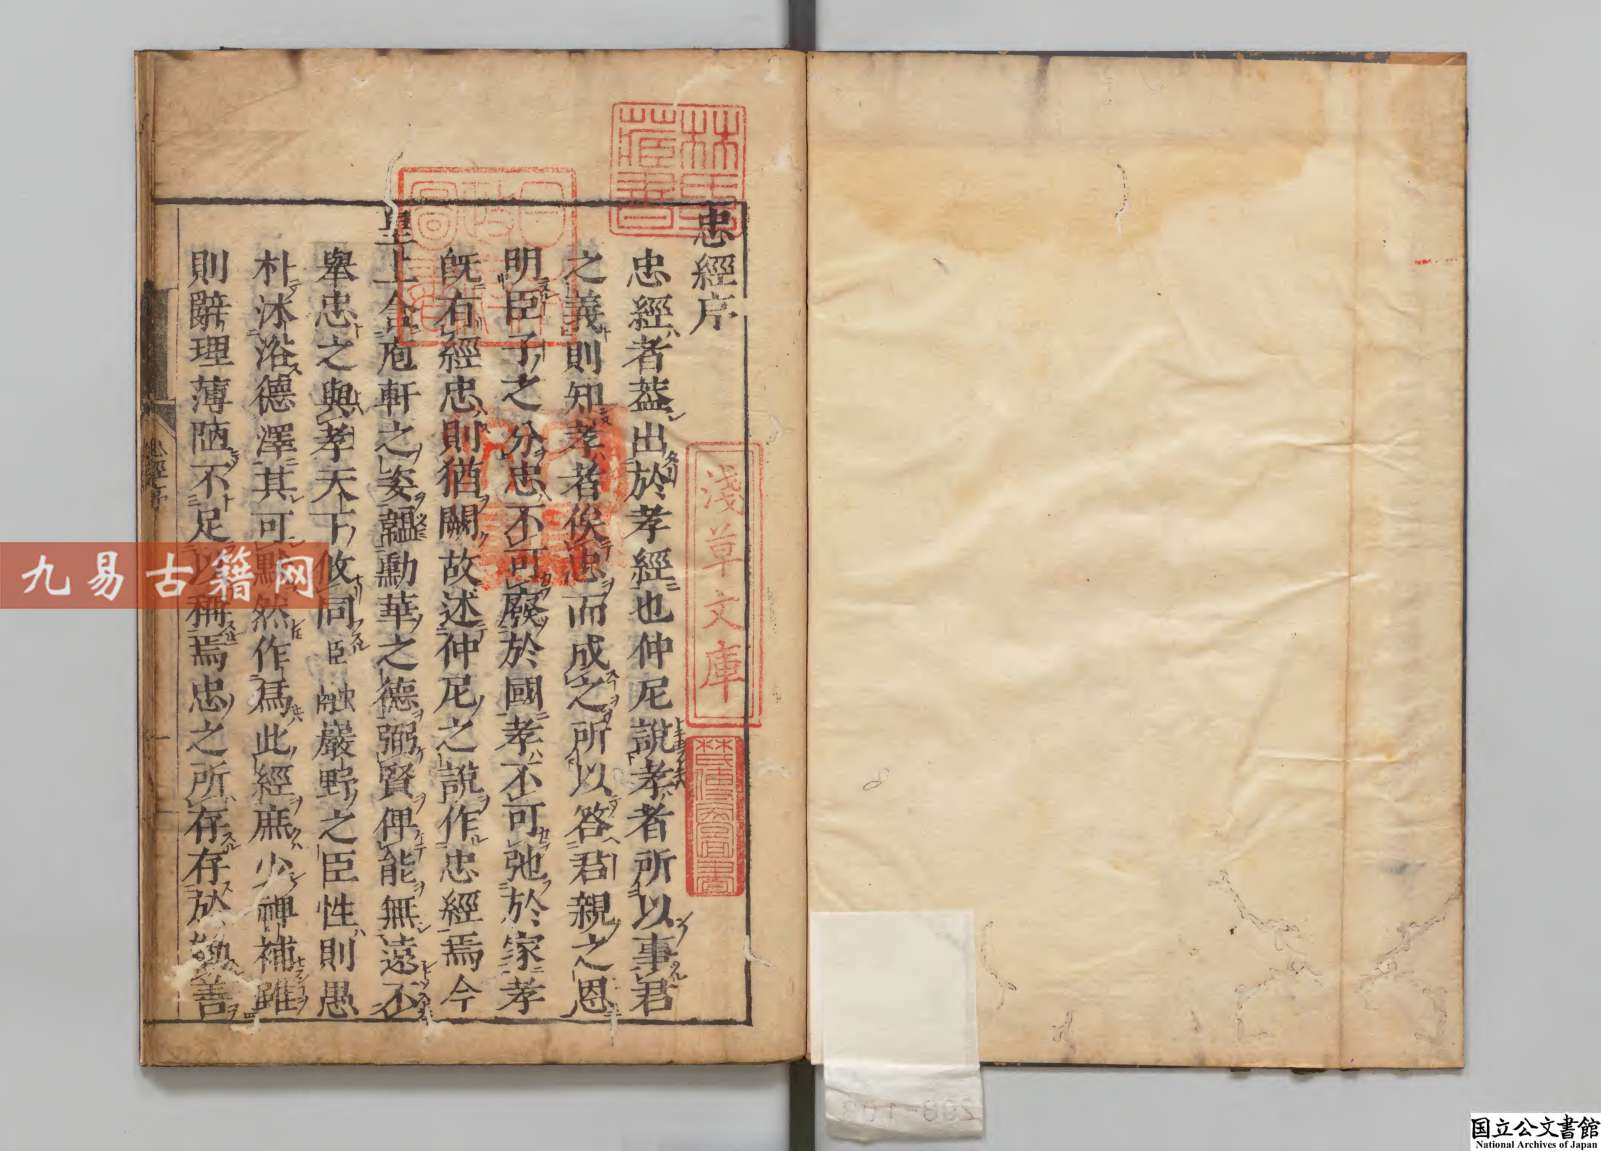 忠經序
忠經者蓋出於孝經也仲尼說孝者所以事君
之義則知孝者俟忠而成之所以答君親之恩
明臣子之分忠不可廢於國孝不可弛於家孝
旣有經忠則猶闕故述仲尼之說作忠經焉今
皇上含庖軒之姿韞勳華之德弼賢俾能無遠不
舉忠之與孝天下攸同臣融巖野之臣性則愚
朴沐浴德澤其可默然作爲此經庶少裨補雖
則辭理薄陋不足以稱焉忠之所存存於勸善
忠經序
一
林氏藏書
日本政府圖書
淺草文庫
九易古籍网
国立公文書館
National Archives of Japan